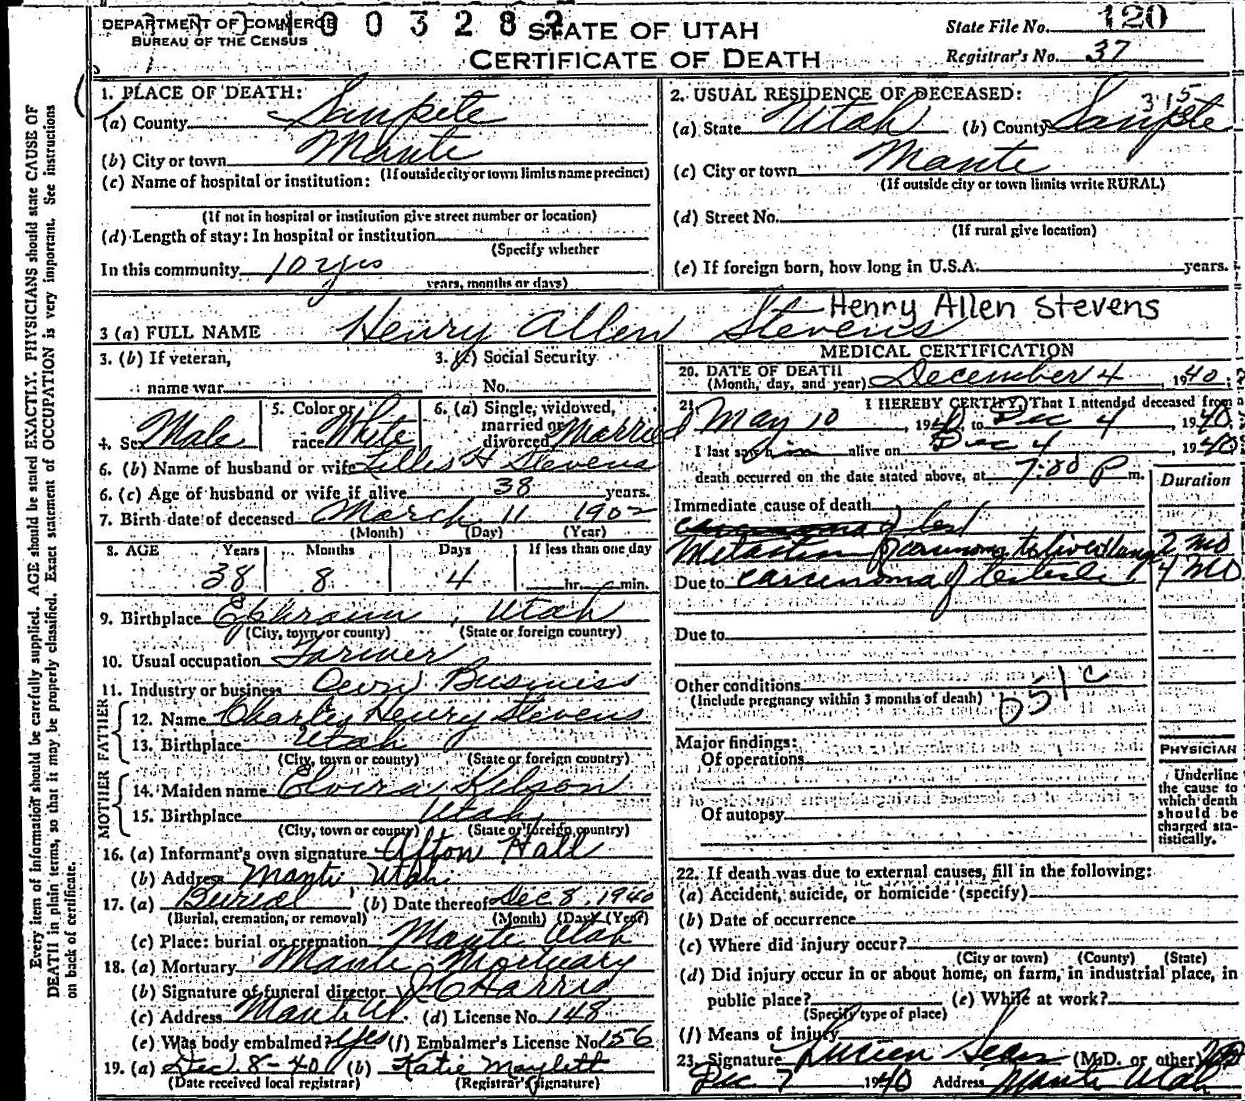 DEPARTMENT OF COMMERCE
BUREAU OF THE CENSUS
003282
STATE OF UTAH
CERTIFICATE OF DEATH
State File No. 120
Registrar's No. 37
1. PLACE OF DEATH:
(a) County Sanpete
(b) City or town Mante
(If outside city or town limits name precinct)
(c) Name of hospital or institution:
(If not in hospital or institution give street number or location)
(d) Length of stay: In hospital or institution
(Specify whether
In this community 10 yrs
years, months or days)
2. USUAL RESIDENCE OF DECEASED:
315
(a) State Utah (b) County Sanpete
(c) City or town Mante
(If outside city or town limits write RURAL)
(d) Street No.
(If rural give location)
(e) If foreign born, how long in U.S.A. years.
3 (a) FULL NAME Henry Allen Stevens
Henry Allen Stevens
3. (b) If veteran,
name war
3. (c) Social Security
No.
4. Sex Male
5. Color or
race White
6. (a) Single, widowed,
married or
divorced Married
6. (b) Name of husband or wife Lillis H Stevens
6. (c) Age of husband or wife if alive 38 years.
7. Birth date of deceased March 11 1902
(Month) (Day) (Year)
8. AGE Years Months Days If less than one day
38 8 4 hr. min.
9. Birthplace Ephraim, Utah
(City, town, or county) (State or foreign country)
10. Usual occupation Farmer
11. Industry or business Own Business
FATHER
12. Name Charley Henry Stevens
13. Birthplace Utah
(City, town or county) (State or foreign country)
MOTHER
14. Maiden name Elvira Kelson
15. Birthplace Utah
(City, town or county) (State or foreign country)
16. (a) Informant's own signature Afton Hall
(b) Address Manti Utah
17. (a) Burial (b) Date thereof Dec 8, 1940
(Burial, cremation, or removal) (Month) (Day) (Year)
(c) Place: burial or cremation Mante Utah
18. (a) Mortuary Mante Mortuary
(b) Signature of funeral director Harris
(c) Address Mante U (d) License No. 148
(e) Was body embalmed? yes (f) Embalmer's License No. 156
19. (a) Dec 8-40 (b) Katie Maylett
(Date received local registrar) (Registrar's signature)
MEDICAL CERTIFICATION
20. DATE OF DEATH
(Month, day, and year) December 4, 1940
21. I HEREBY CERTIFY, That I attended deceased from
May 10, 1940, to Dec 4, 1940.
I last saw him alive on Dec 4, 1940
death occurred on the date stated above, at P m.
Duration
Immediate cause of death
carcinoma to liver & lungs 2 mo
Due to carcinoma of testicle 4 mo
Due to
Other conditions
(Include pregnancy within 3 months of death)
051c
Major findings:
Of operations
Of autopsy
PHYSICIAN
Underline
the cause to
which death
should be
charged sta-
tistically.
22. If death was due to external causes, fill in the following:
(a) Accident, suicide, or homicide (specify)
(b) Date of occurrence
(c) Where did injury occur?
(City or town) (County) (State)
(d) Did injury occur in or about home, on farm, in industrial place, in
public place? (e) While at work?
(Specify type of place)
(f) Means of injury
23. Signature Lucien Sears (M.D. or other) MD
Dec 7 1940 Address Mante Utah
Every item of information should be carefully supplied. AGE should be stated EXACTLY. PHYSICIANS should state CAUSE OF
DEATH in plain terms, so that it may be properly classified. Exact statement of OCCUPATION is very important. See instructions
on back of certificate.